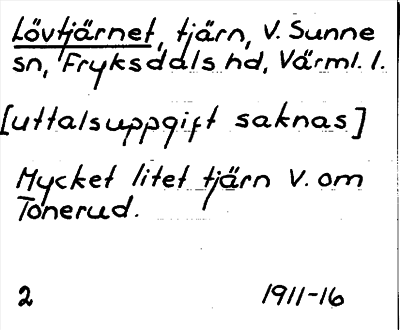 Lövtjärnet, tjärn, V. Sunne
sn, Fryksdals hd, Värml. l.
[uttalsuppgift saknas]
Mycket litet tjärn V. om
Tonerud.
2 1911-16